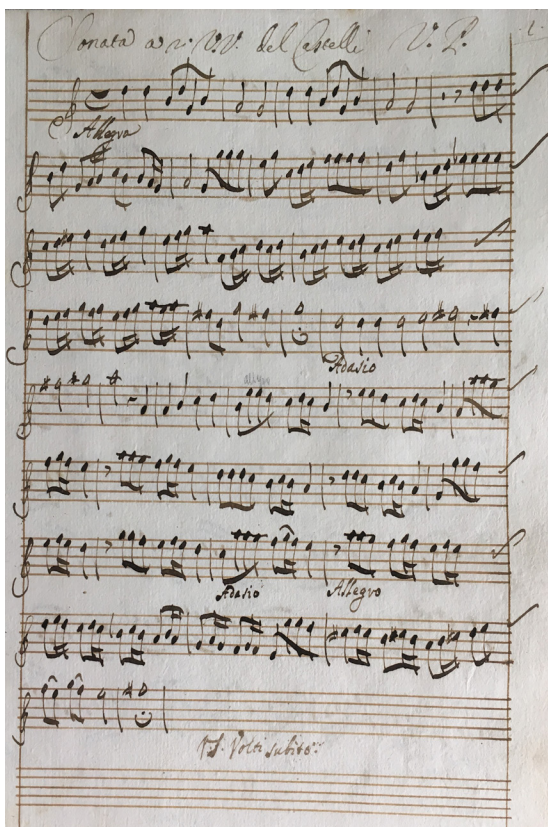 Sonata a 2: VV. del Castelli V. P.
Allegro
Adasio
allegro
Adasio Allegro
V. S. Volti subito: